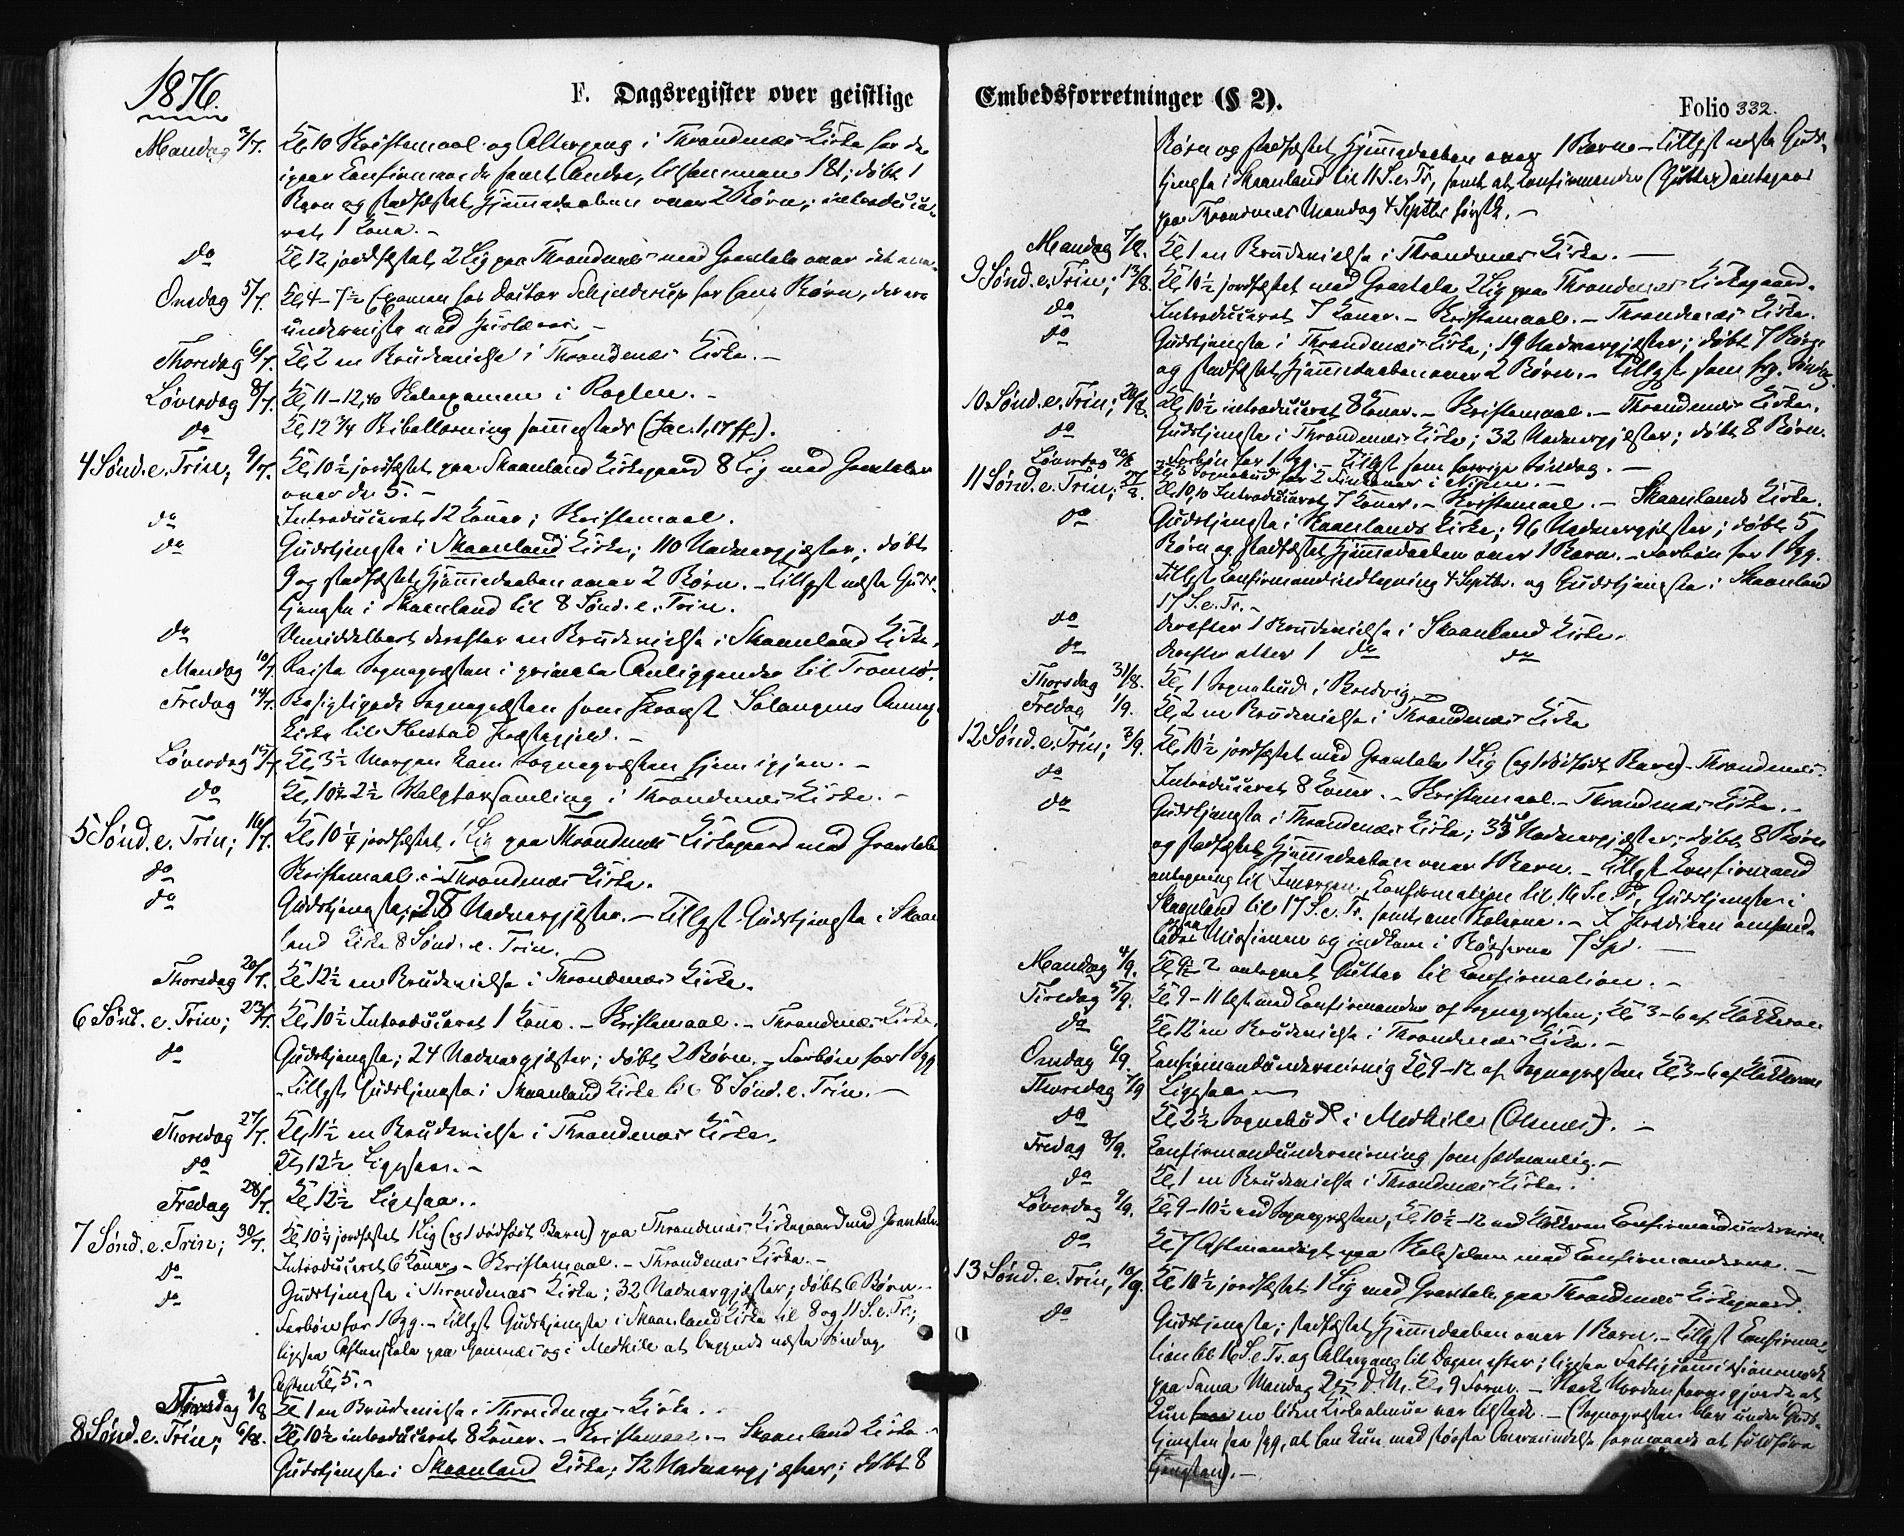 1876.
F. Dagsregister over geistlige
Mandag 3/7. Kl. 10 Skriftemaal og Altergang i Throndenæs Kirke for de
igaar Confirmerede samt Andre, tilsammen 181; døbt 1
Barn og stadfæstet Hjemmedaaben over 2 Børn; introduce-
ret 1 Kone. –
do Kl. 12 jordfæstet 2 Lig paa Throndenæs med Gravtale over det ene.
Onsdag 5/7. Kl. 4–7½ Examen hos Doctor Schjelderup for hans Børn, der ere
underviste ved Huslærer. –
Thorsdag 6/7. Kl. 2 en Brudevielse i Throndenæs Kirke. –
Løverdag 8/7. Kl. 11–12,40 Skoleexamen i Roglen. –
do Kl. 12¾ Bibellæsning sammesteds (Jac. 1, 17 ff.).
4 Sønd. e. Trin; 9/7. Kl. 10½ jordfæstet paa Skaanland Kirkegaard 8 Lig med Gravtaler
over de 5. –
do Introduceret 12 Koner; Skriftemaal.
do Gudstjeneste i Skaanland Kirke; 110 Nadvergjæster; døbt
9 og stadfæstet Hjemmedaaben over 2 Børn. – Tillyst næste Guds-
tjeneste i Skaanland til 8 Sønd. e. Trin.
do Umiddelbart derefter en Brudevielse i Skaanland Kirke.
Mandag 10/7. Reiste Sognepræsten i private Anliggender til Tromsø.
Fredag 14/7. Besigtigede Sognepræsten som Provst Salangens Annex-
Kirke til Ibestad Præstegjeld. –
Løverdag 15/7. Kl. 3½ Morgen kom Sognepræsten hjem igjen. –
do Kl. 10½–2½ Valgforsamling i Throndenæs Kirke. –
5 Sønd. e. Trin; 16/7. Kl. 10¼ jordfæstet 1 Lig paa Throndenæs Kirkegaard med Gravtale
do Skriftemaal i Throndenæs Kirke.
do Gudstjeneste; 28 Nadvergjæster. – Tillyst Gudstjeneste i Skaan-
land Kirke 8 Sønd. e. Trin.
Thorsdag 20/7. Kl. 12½ en Brudevielse i Throndenæs Kirke.
6 Sønd. e. Trin; 23/7. Kl. 10½ Introduceret 1 Kone. – Skriftemaal. – Throndenæs Kirke.
do Gudstjeneste; 24 Nadvergjæster; døbt 2 Børn. – Forbøn for 1 Syg
– Tillyst Gudstjeneste i Skaanland Kirke til 8 Sønd. e. Trin. –
Thorsdag 27/7. Kl. 11½ en Brudevielse i Throndenæs Kirke.
do Kl. 12½ Ligesaa. –
Fredag 28/7. Kl. 12½ Ligesaa.
7 Sønd. e. Trin; 30/7. Kl. 10¼ jordfæstet 1 Lig (og 1 dødfødt Barn) paa Throndenæs Kirkegaard med Gravtale.
do Introduceret 6 Koner. – Skriftemaal. – Throndenæs Kirke. –
do Gudstjeneste i Throndenæs Kirke; 32 Nadvergjæster; døbt 6 Børn. –
Forbøn for 1 Syg. – Tillyst Gudstjeneste i Skaanland Kirke til 8 og 11 S. e. Tr.;
ligesaa Aftenskole paa og i Medkile at begynde næste Søndag
Aften Kl. 5. –
Tirsdag 1/8 Kl. 1 en Brudevielse i Throndenæs Kirke.
8 Sønd. e. Trin; 6/8. Kl. 10½ introduceret 8 Koner. – Skriftemaal. – Skaanland Kirke. –
Gudstjeneste i Skaanland Kirke; 72 Nadvergjæster; døbt 8
Embedsforretninger (§ 2).
Folio 332.
Børn og stadfæstet Hjemmedaaben over 1 Barn. – Tillyst næste Guds-
tjeneste i Skaanland til 11 S. e. Tr., samt at Confirmander (Gutter) antages
paa Throndenæs Mandag 4 Septbr. førstk. –
Mandag 7/8. Kl. 1 en Brudevielse i Throndenæs Kirke. –
9 Sønd. e. Trin; 13/8. Kl. 10½ jordfæstet med Gravtale 2 Lig paa Throndenæs Kirkegaard.
do Introduceret 7 Koner. – Skriftemaal. – Throndenæs Kirke.
do Gudstjeneste i Throndenæs Kirke; 19 Nadvergjæster; døbt 7 Børn
og stadfæstet Hjemmedaaben over 2 Børn. – Tillyst som frg. Søndag.
10 Sønd. e. Trin; 20/8. Kl. 10½ introduceret 8 Koner. – Skriftemaal. – Throndenæs Kirke.
do Gudstjeneste i Throndenæs Kirke; 32 Nadvergjæster; døbt 8 Børn.
Forbøn for 1 Syg. Tillyst som forrige Søndag. –
Løverdag 26/8 Sognebud for 2 i
11 Sønd. e. Trin; 27/8. Kl. 10,10 Introduceret 7 Koner. – Skriftemaal. – Skaanlands Kirke.
do Gudstjeneste i Skaanlands Kirke; 96 Nadvergjæster; døbt 5
Børn og stadfæstet Hjemmedaaben over 1 Barn. – Forbøn for 1 Syg.
Tillyst Confirmandindtegning 4 Septbr. og Gudstjeneste i Skaanland
17 S. e. Tr. –
do Derefter 1 Brudevielse i Skaanland Kirke.
do Derefter atter 1 do do
Thorsdag 31/8. Kl. 1 Sognebud i Bredvig.
Fredag 1/9. Kl. 2 en Brudevielse i Throndenæs Kirke
12 Sønd. e. Trin; 3/9. Kl. 10½ jordfæstet med Gravtale 1 Lig (og 1 dødfødt Barn) – Throndenæs.
do Introduceret 8 Koner. – Skriftemaal. – Throndenæs Kirke. –
do Gudstjeneste i Throndenæs Kirke; Nadvergjæster; døbt 8 Børn
og stadfæstet Hjemmedaaben over 1 Barn. – Tillyst Confirmand
antagning til Imorgen, Confirmation til 16 S. e. Tr., Gudstjeneste i
Skaanland til 17 S. e. Tr. samt om Skolerne. – I Prædiken omhand-
ledes Missionen og indkom i Bøsserne 7 Spd. –
Mandag 4/9. Kl. 9½–2 antaget Gutter til Confirmation. –
Tirsdag 5/9. Kl. 9–11 læst med Confirmander af Sognepræsten; Kl. 3–6 af Klokkeren
do Kl. 12 en Brudevielse i Throndenæs Kirke. –
Onsdag 6/9. Confirmandundervisning Kl. 9–12 af Sognepræsten Kl. 3–6 af Klokkeren
Thorsdag 7/9 Ligesaa –
do Kl. 2½ Sognebud i Medkile (Olsnes). –
Fredag 8/9. Confirmandundervisning som sædvanlig. –
do Kl. 1 en Brudevielse i Throndenæs Kirke.
Løverdag 9/9. Kl. 9–10½ ved Sognepræsten, Kl. 10½–12 ved Klokkeren Confirmandundervisn.
do Kl. 7 Aftenandagt paa Skolestuen med Confirmanderne. –
13 Sønd. e. Trin; 10/9. Kl. 10½ jordfæstet 1 Lig med Gravtale paa Throndenæs Kirkegaard.
do Gudstjeneste; stadfæstet Hjemmedaaben over 1 Barn. – Tillyst Confirma-
tion til 16 S. e. Tr. og Altergang til Dagen efter; ligesaa Fattigcommissionsmøde
paa Sama Mandag 25 d. M. Kl. 9 Form. – Stærk Norden foraarsagede at
kun en liden Kirkealmue var tilstede. – (Sognepræsten blev under Guds-
tjenesten saa syg, at han kun med største Overvindelse formaaede at fuldføre
Tjenesten). –